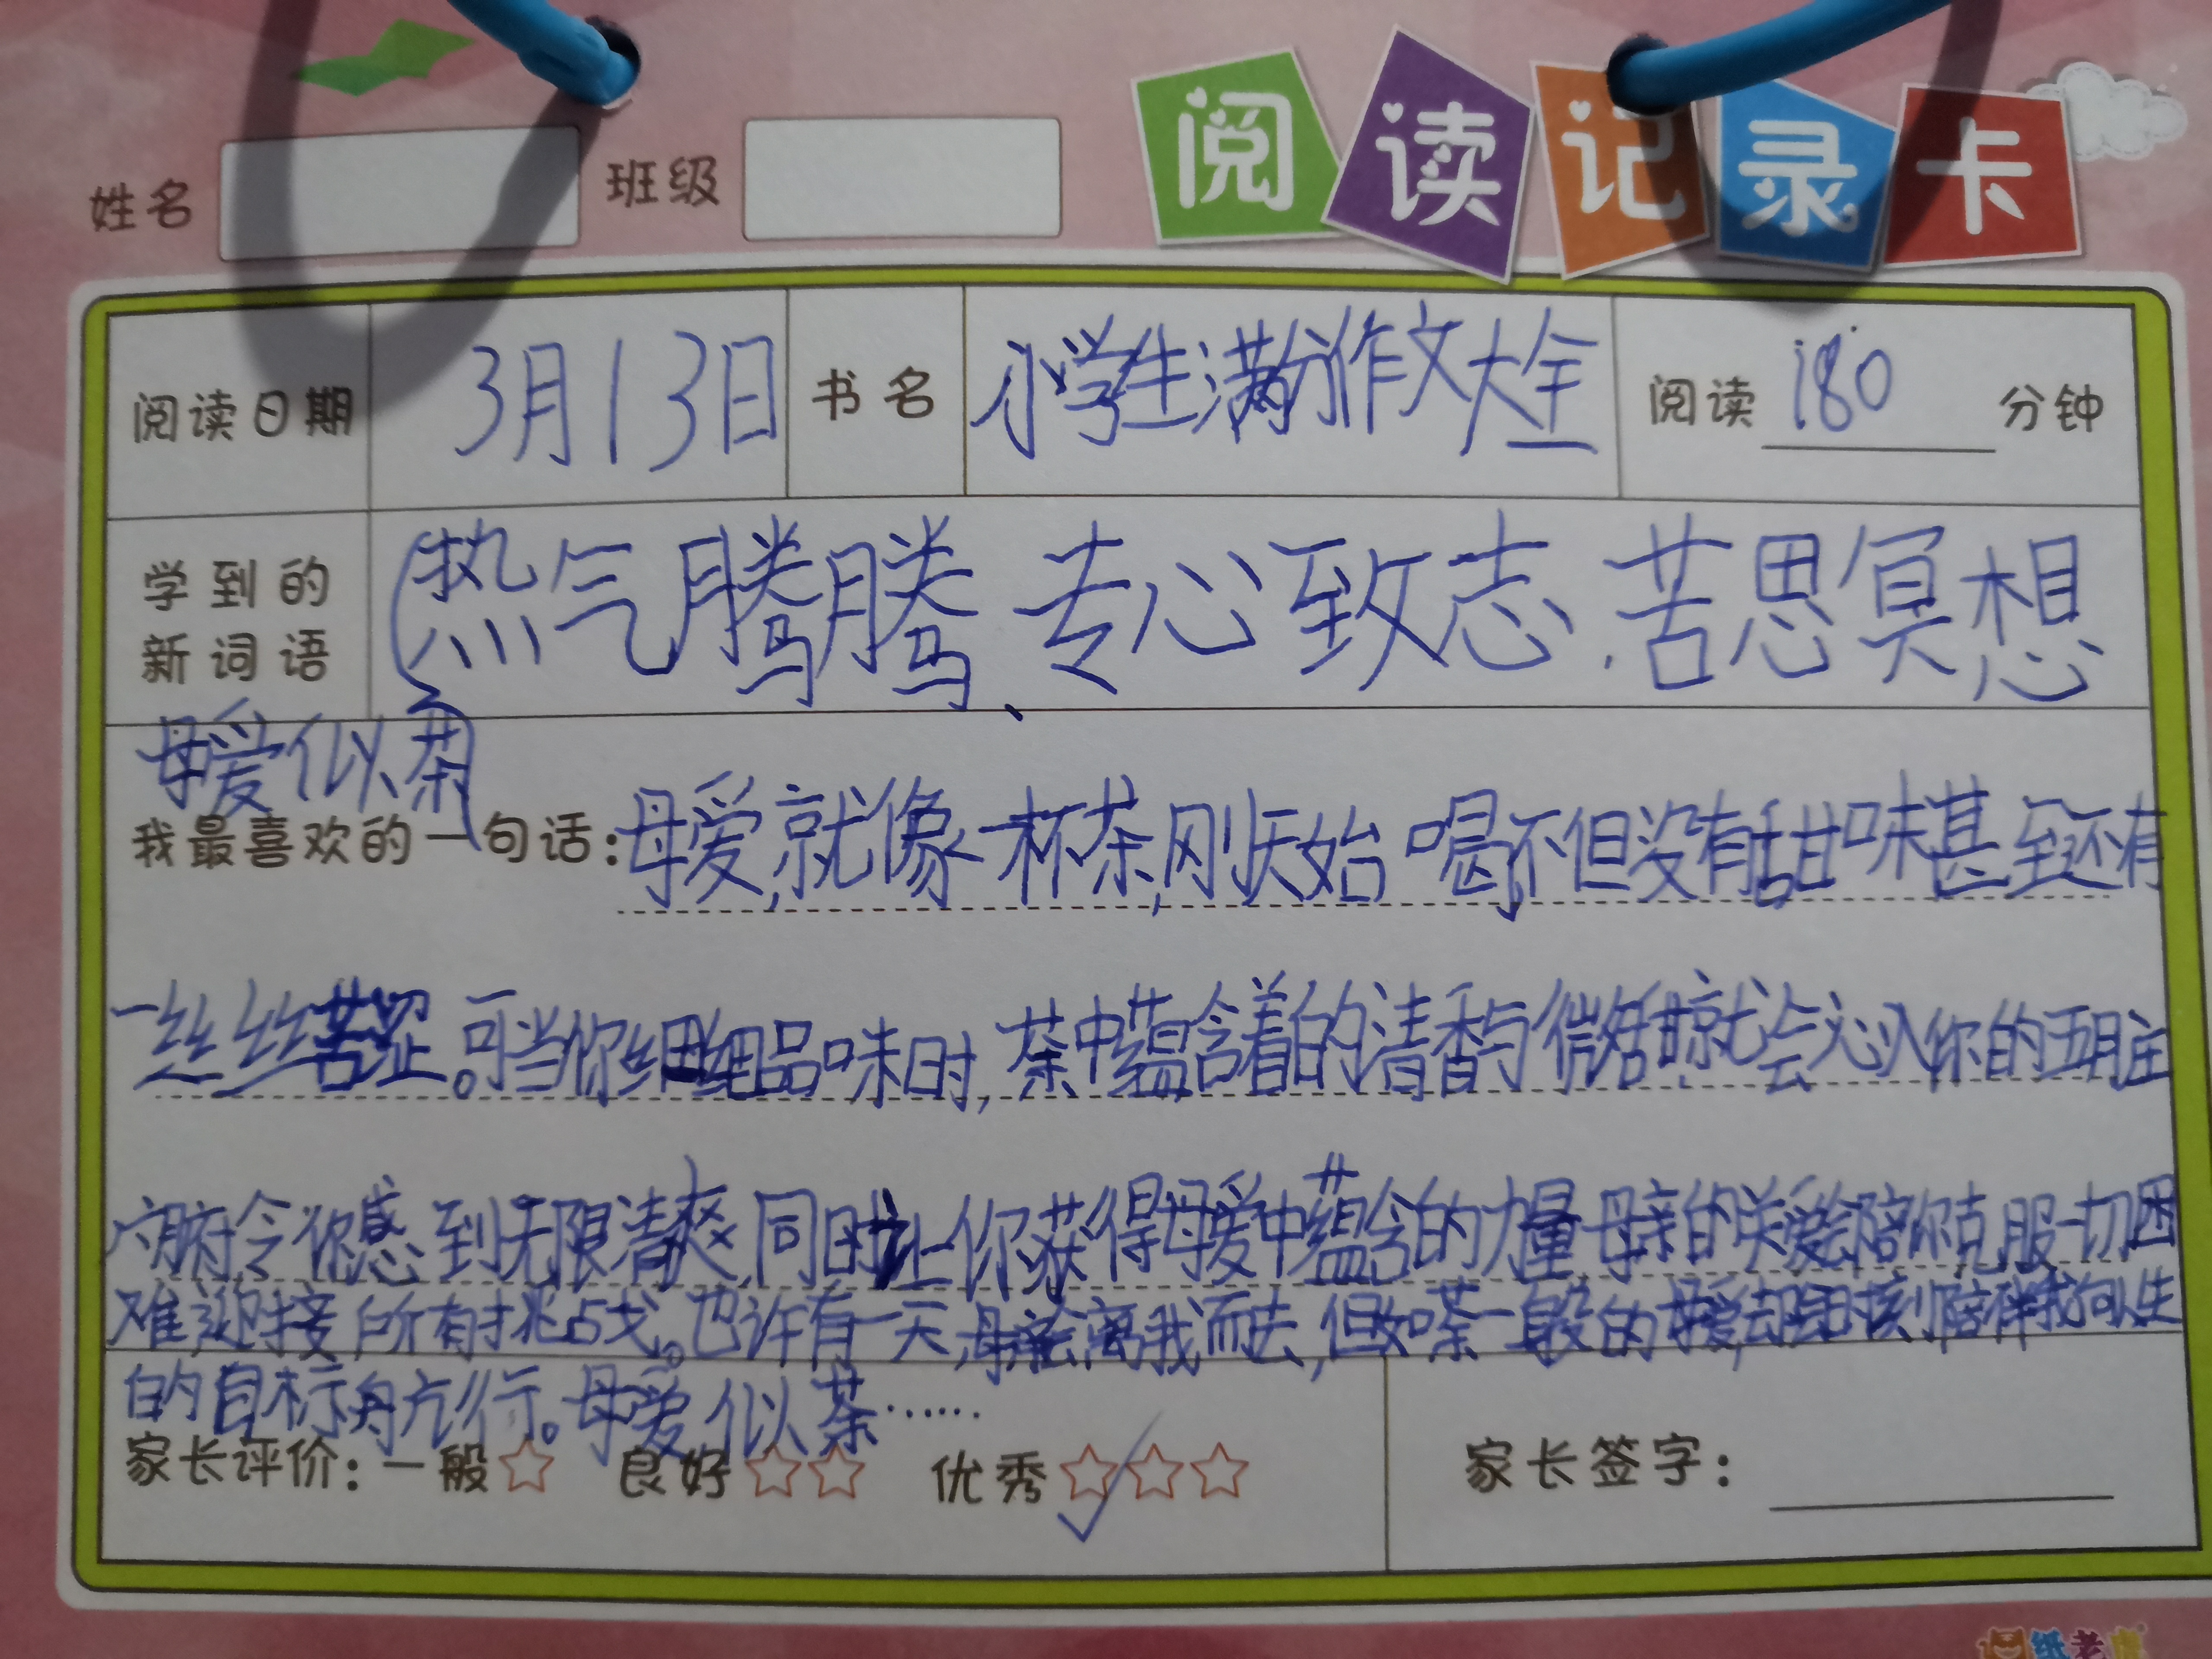 阅读记录卡
姓名 班级
阅读日期 3月13日 书名 小学生满分作文大全 阅读 180 分钟
学到的新词语 热气腾腾、专心致志、苦思冥想
母爱似茶
我最喜欢的一句话：母爱,就像一杯茶,刚开始喝不但没有甜味甚至还有
一丝丝苦涩。可当你细细品味时,茶中蕴含着的清香与微甜就会沁入你的五脏
六腑令你感到无限清爽,同时让你获得母爱中蕴含的力量母亲的关爱会陪你克服一切困
难迎接所有挑战。也许有一天,母亲会离我而去,但如茶一般的母爱,却时刻陪伴我向人生
的目标航行。母爱似茶……
家长评价：一般☆ 良好☆☆ 优秀☆☆☆ 家长签字：
纸老虎